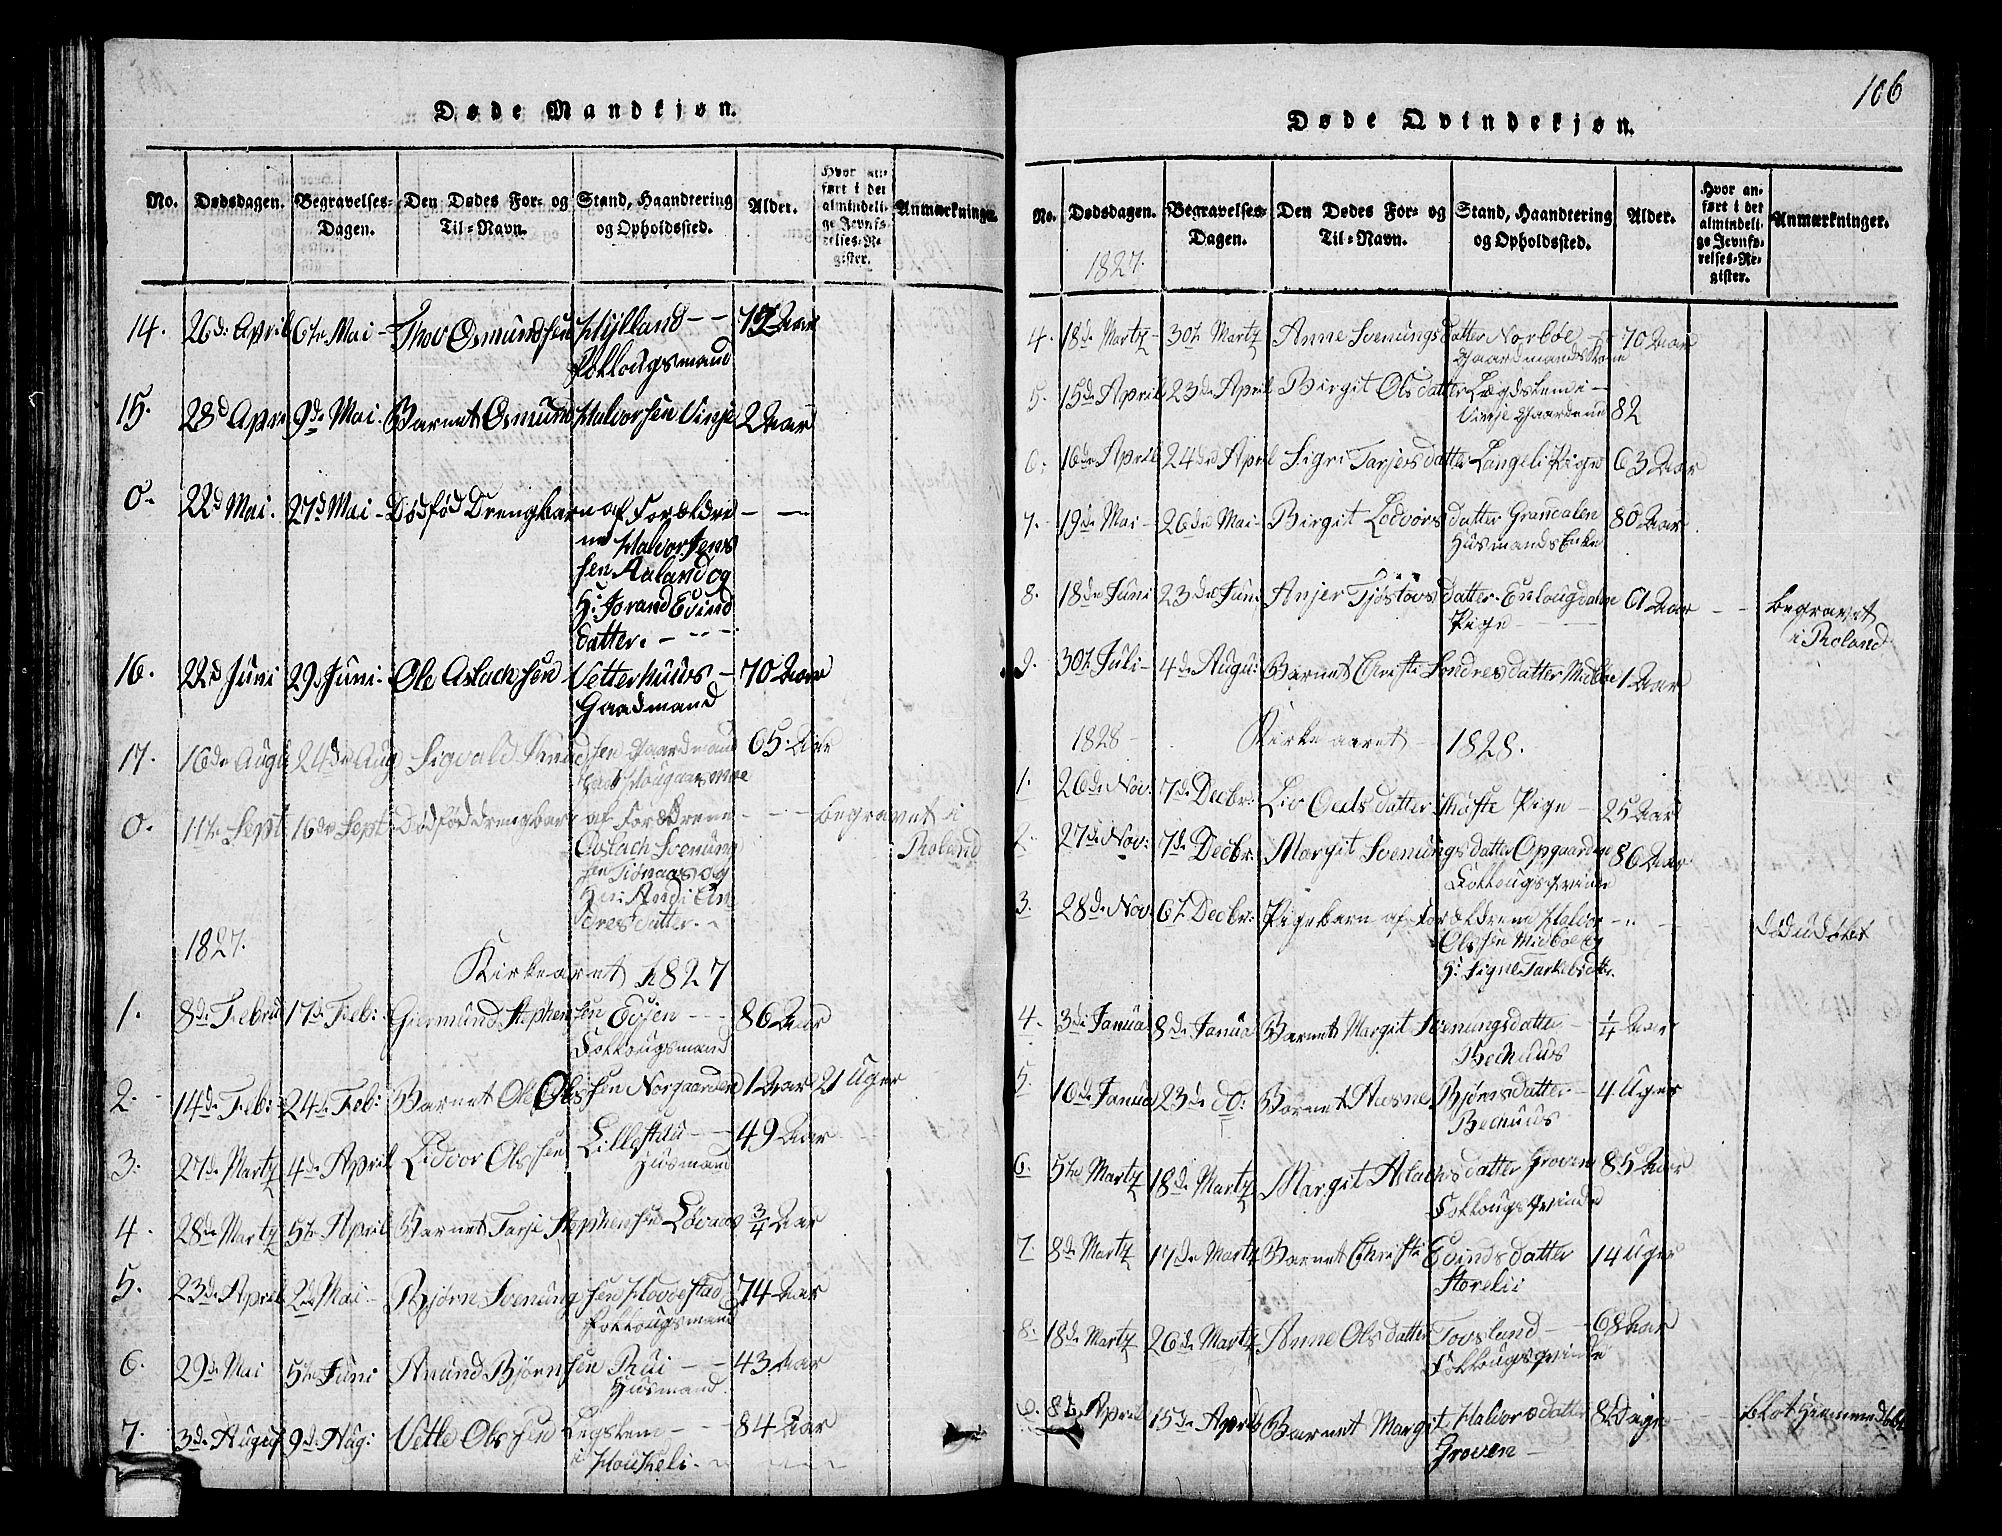 Døde Mandkjøn.
No. Dødsdagen. Begravelses-Dagen. Den Dødes For- og Til-Navn. Stand, Haandtering og Opholdssted. Alder. Hvor anført i det almindelige Jevnførelses-Register. Anmærkninger.
14. 26d. April 6te Mai - Thov Osmundssen Hylland - -
Folkougsmand
15. 28d April 9de Mai. Barnet Osmund Halvorsen Vinje 2 Aar
0. 22d Mai. 27d Mai - Dødfød Drengbarn af Forældre - -
ne Halvor Jens
sen Aaland og
H: Jorand Evind
datter. - - -
16. 22d Juni 29d Juni. Ole Aslachsen Vetterhuus - 70 Aar
Gaardmand
17. 16de Augu 24de Aug Sigvald Knudsen Gaardmand 65. Aar
0. 11te Sept 16de Sept Dødfød drengbarn af Forældrene - - - begravet i
Aslach Svenung Roland
dresdatter. -
1827.
Kirkeaaret 1827
1. 8de Februa 17de Feb: Giermund Stephensen Evjen - - - 86 Aar
Folkougsmand
2. 14de Feb: 24de Feb: Barnet Ole Olssen Norgaarden 1 Aar 21 Uger
3. 27de Martz 4de April Lidvor Olssen Lillestdu - - 49 Aar
Husmand
4. 28de Martz 5te April Barnet Tarje Stephensen Løvaas 3/4 Aar
5. 23de April 2de Mai - Bjørn Svenungsen Hovdestad 74 Aar
Folkougsmand
6. 29de Mai 5te Juni Anund Bjørnsen Rui - - 43 Aar
Husmand.
7. 3de August 9de Aug: Vetle Olssen Legsken - - 84 Aar
i Haukeli. -
106
Døde Qvindekjøn.
No. Dødsdagen. Begravelses-Dagen. Den Dødes For- og Til-Navn. Stand, Haandtering og Opholdssted. Alder. Hvor anført i det almindelige Jevnførelses-Register. Anmærkninger.
1827.
4. 18de Martz - 30te Martz Anne Svenungsdatter Norbøe - 70 Aar
Gaardmandskone
5. 15de April 23de April Birgit Olsdatter Lægdslem i -
Vinje 82
6. 16de April 24de April Sigri Tarjersdatter Langeli Pige 63 Aar
7. 19de Mai - 26de Mai - Birgit Lodvorsdatter Grandalen 80 Aar
Husmands Enke
8. 18de Juni 23de Jun. Anjer Tjøstovsdatter Enlougdalen 61 Aar - - begravet
Pige - - - i Roland
9. 30te Juli - 4de Augu: Barnet Christi Sondresdatter Midbøe 1 Aar
1828 - Kirkeaaret - 1828.
1. 26de Nov: 7de Decbr: Liv Oulsdatter Høfte Pige - 25 Aar
2. 27de Nov: 7de Decbr: Margit Svenungsdatter Opgaarden 86 Aar
Folkougsqvinde
3. 28de Nov: 6te Decbr: Pigebarn af Forældrene Halvor - - død udøbt
Olssen Midbøe og
H: Signe Tarkelsdtr.
4. 3de Janua 8de Janua Barnet Margit Svenungsdatter - 1/4 Aar
Bechuus
5. 16de Janua 23de do: Barnet Aasne Bjørnsdatter - 4 Uger
Bechuus
6. 5te Martz 18de Martz Margit Aslachsdatter Groven 85 Aar
Folkougsqvinde
7. 8de Martz 17de Martz Barnet Christi Evindsdatter 14 Uger
Storelii
8. 18de Martz 26de Martz Anne Olsdatter Tovsland - - 68 Aar
Folkougsqvinde
9. 8de April 15de April Barnet Margit Halvorsdatter 8 Dage - - blot hiemmedøbt
Groven -